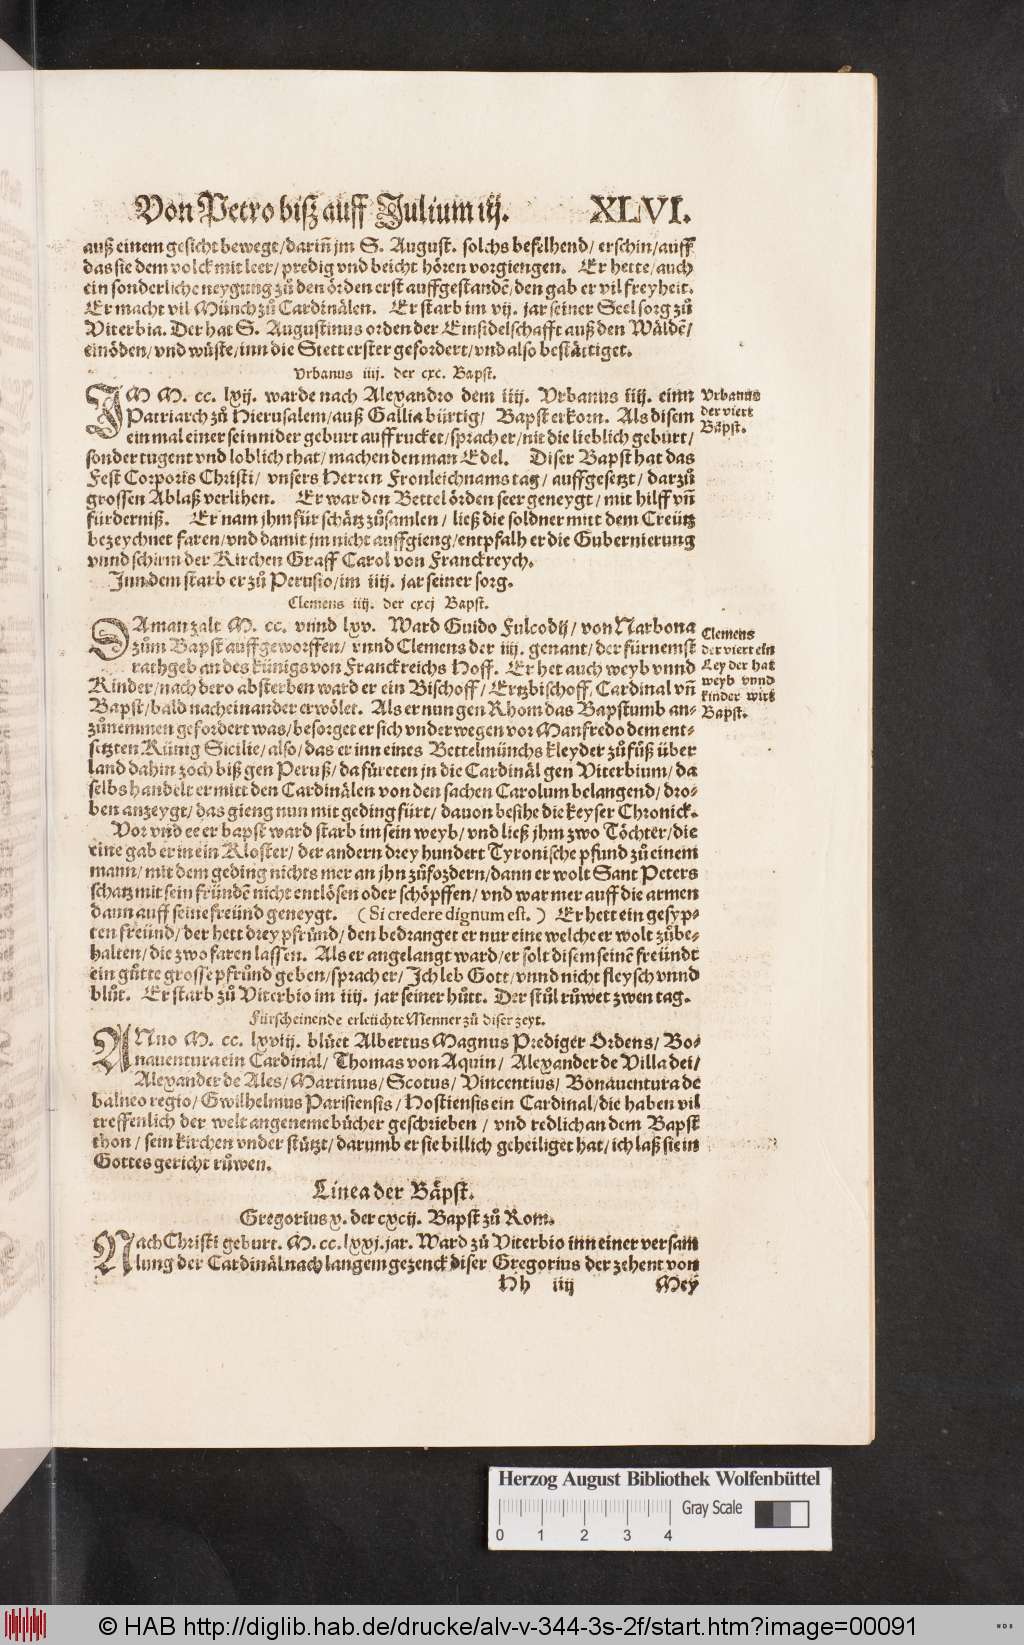 Von Petro biß auff Julium iij. XLVI.
auß einem gesicht bewegt/darin̄ jm S. August. solchs befelhend/ erschin/auff
das sie dem volck mit leer/predig vnd beicht hören vorgiengen. Er hette/auch
ein sonderliche neygung zů den örden erst auffgestandē/den gab er vil freyheit.
Er macht vil Münch zů Cardinälen. Er starb im vij. jar seiner Seelsorg zů
Viterbia. Der hat S. Augustinus orden der Einsidelschafft auß den Wäldē/
einöden/vnd wüste/inn die Stett erster gefordert/vnd also bestättiget.
Vrbanus iiij. der cxc. Bapst.
IM M. cc. lxij. warde nach Alexandro dem iiij. Vrbanus iiij. einn
Patriarch zů Hierusalem/auß Gallia bürtig/ Bapst erkorn. Als disem
ein mal einer sein nider geburt auffrucket/sprach er/nit die lieblich geburt/
sonder tugent vnd loblich that/machen den man Edel. Diser Bapst hat das
Fest Corporis Christi/ vnsers Herren Fronleichnams tag/ auffgesetzt/ darzů
grossen Ablaß verlihen. Er war den Bettel örden seer geneygt/ mit hilff vn̄
fürderniß. Er nam jhm für schätz zůsamlen/ ließ die soldner mitt dem Creütz
bezeychnet faren/vnd damit jm nicht auffgieng/entpfalh er die Gubernierung
vnnd schirm der Kirchen Graff Carol von Franckreych.
Inn dem starb er zů Perusio/im iiij. jar seiner sorg.
Clemens iiij. der cxcj Bapst.
DA man zalt M. cc. vnnd lxv. Ward Guido Fulcodij/von Narbona
zům Bapst auffgeworffen/ vnnd Clemens der iiij. genant/der fürnemst
rathgeb an des künigs von Franckreichs Hoff. Er het auch weyb vnnd
Kinder/nach dero absterben ward er ein Bischoff/ Ertzbischoff, Cardinal vn̄
Bapst/bald nacheinander erwölet. Als er nun gen Rhom das Bapstumb an-
zůnemmen gefordert was/besorget er sich vnderwegen vor Manfredo dem ent-
setzten Künig Sicilie/also/das er inn eines Bettelmünchs kleyder zů füß über
land dahin zoch biß gen Peruß/da füreten jn die Cardinäl gen Viterbium/da
selbs handelt er mitt den Cardinälen von den sachen Carolum belangend/dro-
ben anzeygt/das gieng nun mit geding fürt/dauon besihe die keyser Chronick.
Vor vnd ee er bapst ward starb im sein weyb/vnd ließ jhm zwo Töchter/die
eine gab er in ein Kloster/der andern drey hundert Tyronische pfund zů einem
mann/mit dem geding nichts mer an jhn zůfozdern/dann er wolt Sant Peters
schatz mit sein fründē nicht entlösen oder schöpffen/vnd war mer auff die armen
dann auff seine freünd geneygt. (Si credere dignum est.) Er hett ein gesyp-
ten freünd/der hett drey pfründ/den bedranget er nur eine welche er wolt zůbe-
halten/die zwo faren lassen. Als er angelangt ward/er solt disem seinē freündt
ein gůtte grosse pfründ geben/sprach er/Ich leb Gott/vnnd nicht fleysch vnnd
blůt. Er starb zů Viterbio im iiij. jar seiner hůtt. Der stůl růwet zwen tag.
Fürscheinende erleüchte Menner zů diser zeyt.
ANno M. cc. lxviij. blüet Albertus Magnus Prediger Ordens/ Bo-
nauentura ein Cardinal/ Thomas von Aquin/ Alexander de Villa dei/
Alexander de Ales/Martinus/Scotus/Vincentius/Bonauentura de
balneo regio/Gwilhelmus Parisiensis/Hostiensis ein Cardinal/die haben vil
treffenlich der welt angeneme bücher geschrieben/ vnd redlich an dem Bapst
thon/sein kirchen vnder stützt/darumb er sie billich geheiliget hat/ich laß sie in
Gottes gericht růwen.
Linea der Bäpst.
Gregorius x. der cxcij. Bapst zů Rom.
NachChristi geburt. M. cc. lxxj. jar. Ward zů Viterbio inn einer versam
lung der Cardinäl nach langem gezenck diser Gregorius der zehent von
Hh iiij Mey
Vrbanus
der viert
Bäpst.
Clemens
der viert ein
Ley der hat
weyb vnnd
kinder wirt
Bapst.
Herzog August Bibliothek Wolfenbüttel
Gray Scale
0 1 2 3 4
© HAB http://diglib.hab.de/drucke/alv-v-344-3s-2f/start.htm?image=00091